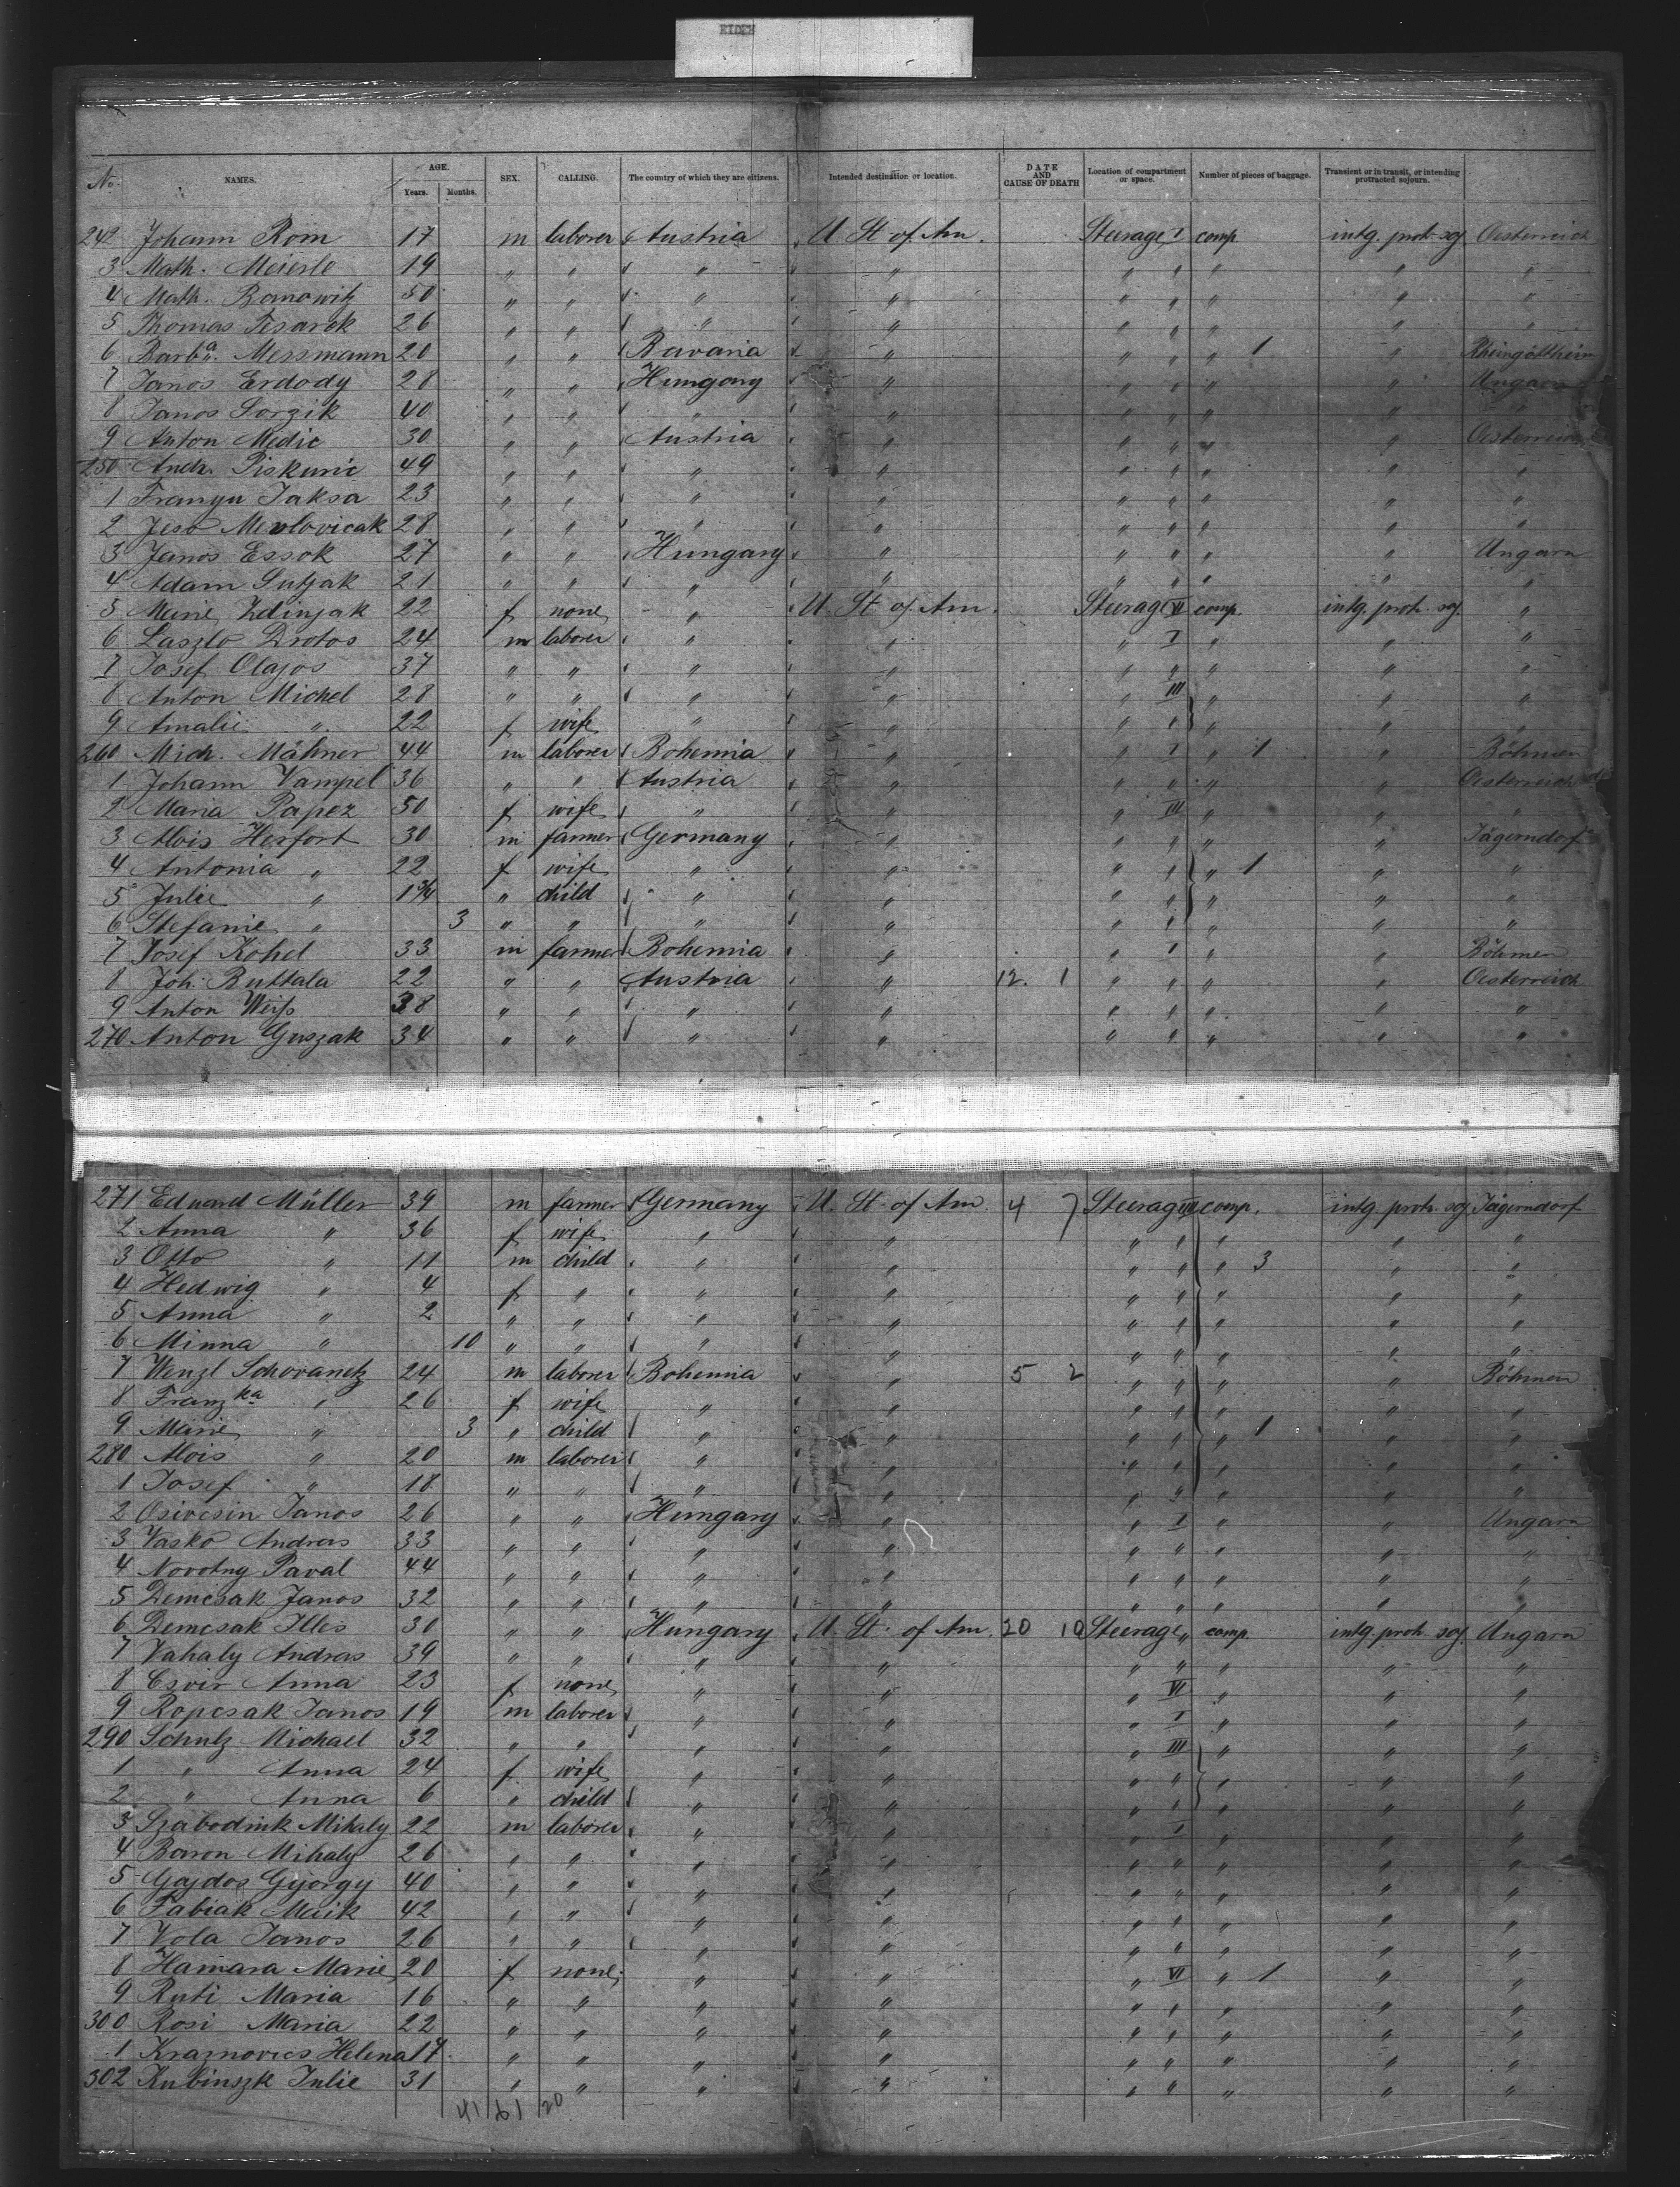 EIDEM
No. NAMES. AGE. Years. Months. SEX. CALLING. The country of which they are citizens. Intended destination or location. DATE AND CAUSE OF DEATH Location of compartment or space. Number of pieces of baggage. Transient or in transit, or intending protracted sojourn.
242 Johann Rom 17 m laborer Austria U. St. of Am. Steerage I comp intg. protr. soj. Oesterreich
3 Math. Meierle 19 " " " " " " " " "
4 Math. Banowitz 50 " " " " " " " " "
5 Thomas Tesarek 26 " " " " " " " " "
6 Barba. Messmann 20 " " Bavaria " " " " 1 " Rheingöltheim
7 Janos Erdody 28 " " Hungary " " " " " Ungarn
8 Janos Sorzik 40 " " " " " " " " "
9 Anton Medic 30 " " Austria " " " " " Oesterreich
250 Andr. Piskuric 49 " " " " " " " " "
1 Franyu Jaksa 23 " " " " " " " " "
2 Jeso Menlovicak 28 " " " " " " " " "
3 Janos Essok 27 " " Hungary " " " " " Ungarn
4 Adam Sutjak 21 " " " " " " " " "
5 Marie Zdinjak 22 f none " U. St. of Am. Steerage VI comp. intg. protr. soj. "
6 Laszlo Drotos 24 m laborer " " " I " " "
7 Josef Olajos 37 " " " " " " " " "
8 Anton Michel 28 " " " " " III " " "
9 Amalie " 22 f wife " " " " " " "
260 Mich. Mähner 44 m laborer Bohemia " " I " 1 " Böhmen
1 Johann Vampel 36 " " Austria " " " " " Oesterreich
2 Maria Papez 50 f wife " " " III " " "
3 Alois Herfort 30 m farmer Germany " " " " " Jägerndorf
4 Antonia " 22 f wife " " " " " 1 " "
5 Julie " 1 3/4 " child " " " " " " "
6 Stefanie " 3 " " " " " " " " "
7 Josef Kohel 33 m farmer Bohemia " " I " " Böhmen
8 Joh. Buttala 22 " " Austria " 12. 1 " " " " Oesterreich
9 Anton Weiss 38 " " " " " " " " "
270 Anton Guszak 34 " " " " " " " " "
271 Eduard Müller 39 m farmer Germany U. St. of Am. 4 7 Steerage III comp. intg. protr. soj. Jägerndorf
2 Anna " 36 f wife " " " " " " "
3 Otto " 11 m child " " " " " 3 " "
4 Hedwig " 4 f " " " " " " " "
5 Anna " 2 " " " " " " " " "
6 Minna " 10 " " " " " " " " "
7 Wenzl Schovanetz 24 m laborer Bohemia " 5 2 " " " " Böhmen
8 Franzka " 26 f wife " " " " " " "
9 Marie " 3 " child " " " " " 1 " "
280 Alois " 20 m laborer " " " " " " "
1 Josef " 18 " " " " " " " " "
2 Osivcsin Janos 26 " " Hungary " " I " " Ungarn
3 Vasko Andras 33 " " " " " " " " "
4 Novotny Paval 44 " " " " " " " " "
5 Demcsak Janos 32 " " " " " " " " "
6 Demcsak Illes 30 " " Hungary U. St. of Am. 20 10 Steerage " comp. intg. protr. soj. Ungarn
7 Vahaly Andras 39 " " " " " " " " "
8 Csvir Anna 23 f none " " " VI " " "
9 Ropcsak Janos 19 m laborer " " " I " " "
290 Schulz Michael 32 " " " " " III " " "
1 " Anna 24 f wife " " " " " " "
2 " Anna 6 " child " " " " " " "
3 Szabodnik Mihaly 22 m laborer " " " I " " "
4 Baron Mihaly 26 " " " " " " " " "
5 Gajdos György 40 " " " " " " " " "
6 Fabiak Maik 42 " " " " " " " " "
7 Vola Janos 26 " " " " " " " " "
8 Hamara Marie 20 f none " " " VI " 1 " "
9 Ruti Maria 16 " " " " " " " " "
300 Rosi Maria 22 " " " " " " " " "
1 Kraznovics Helena 17 " " " " " " " " "
302 Kubinszk Julie 31 " " " " " " " " "
41 61 20